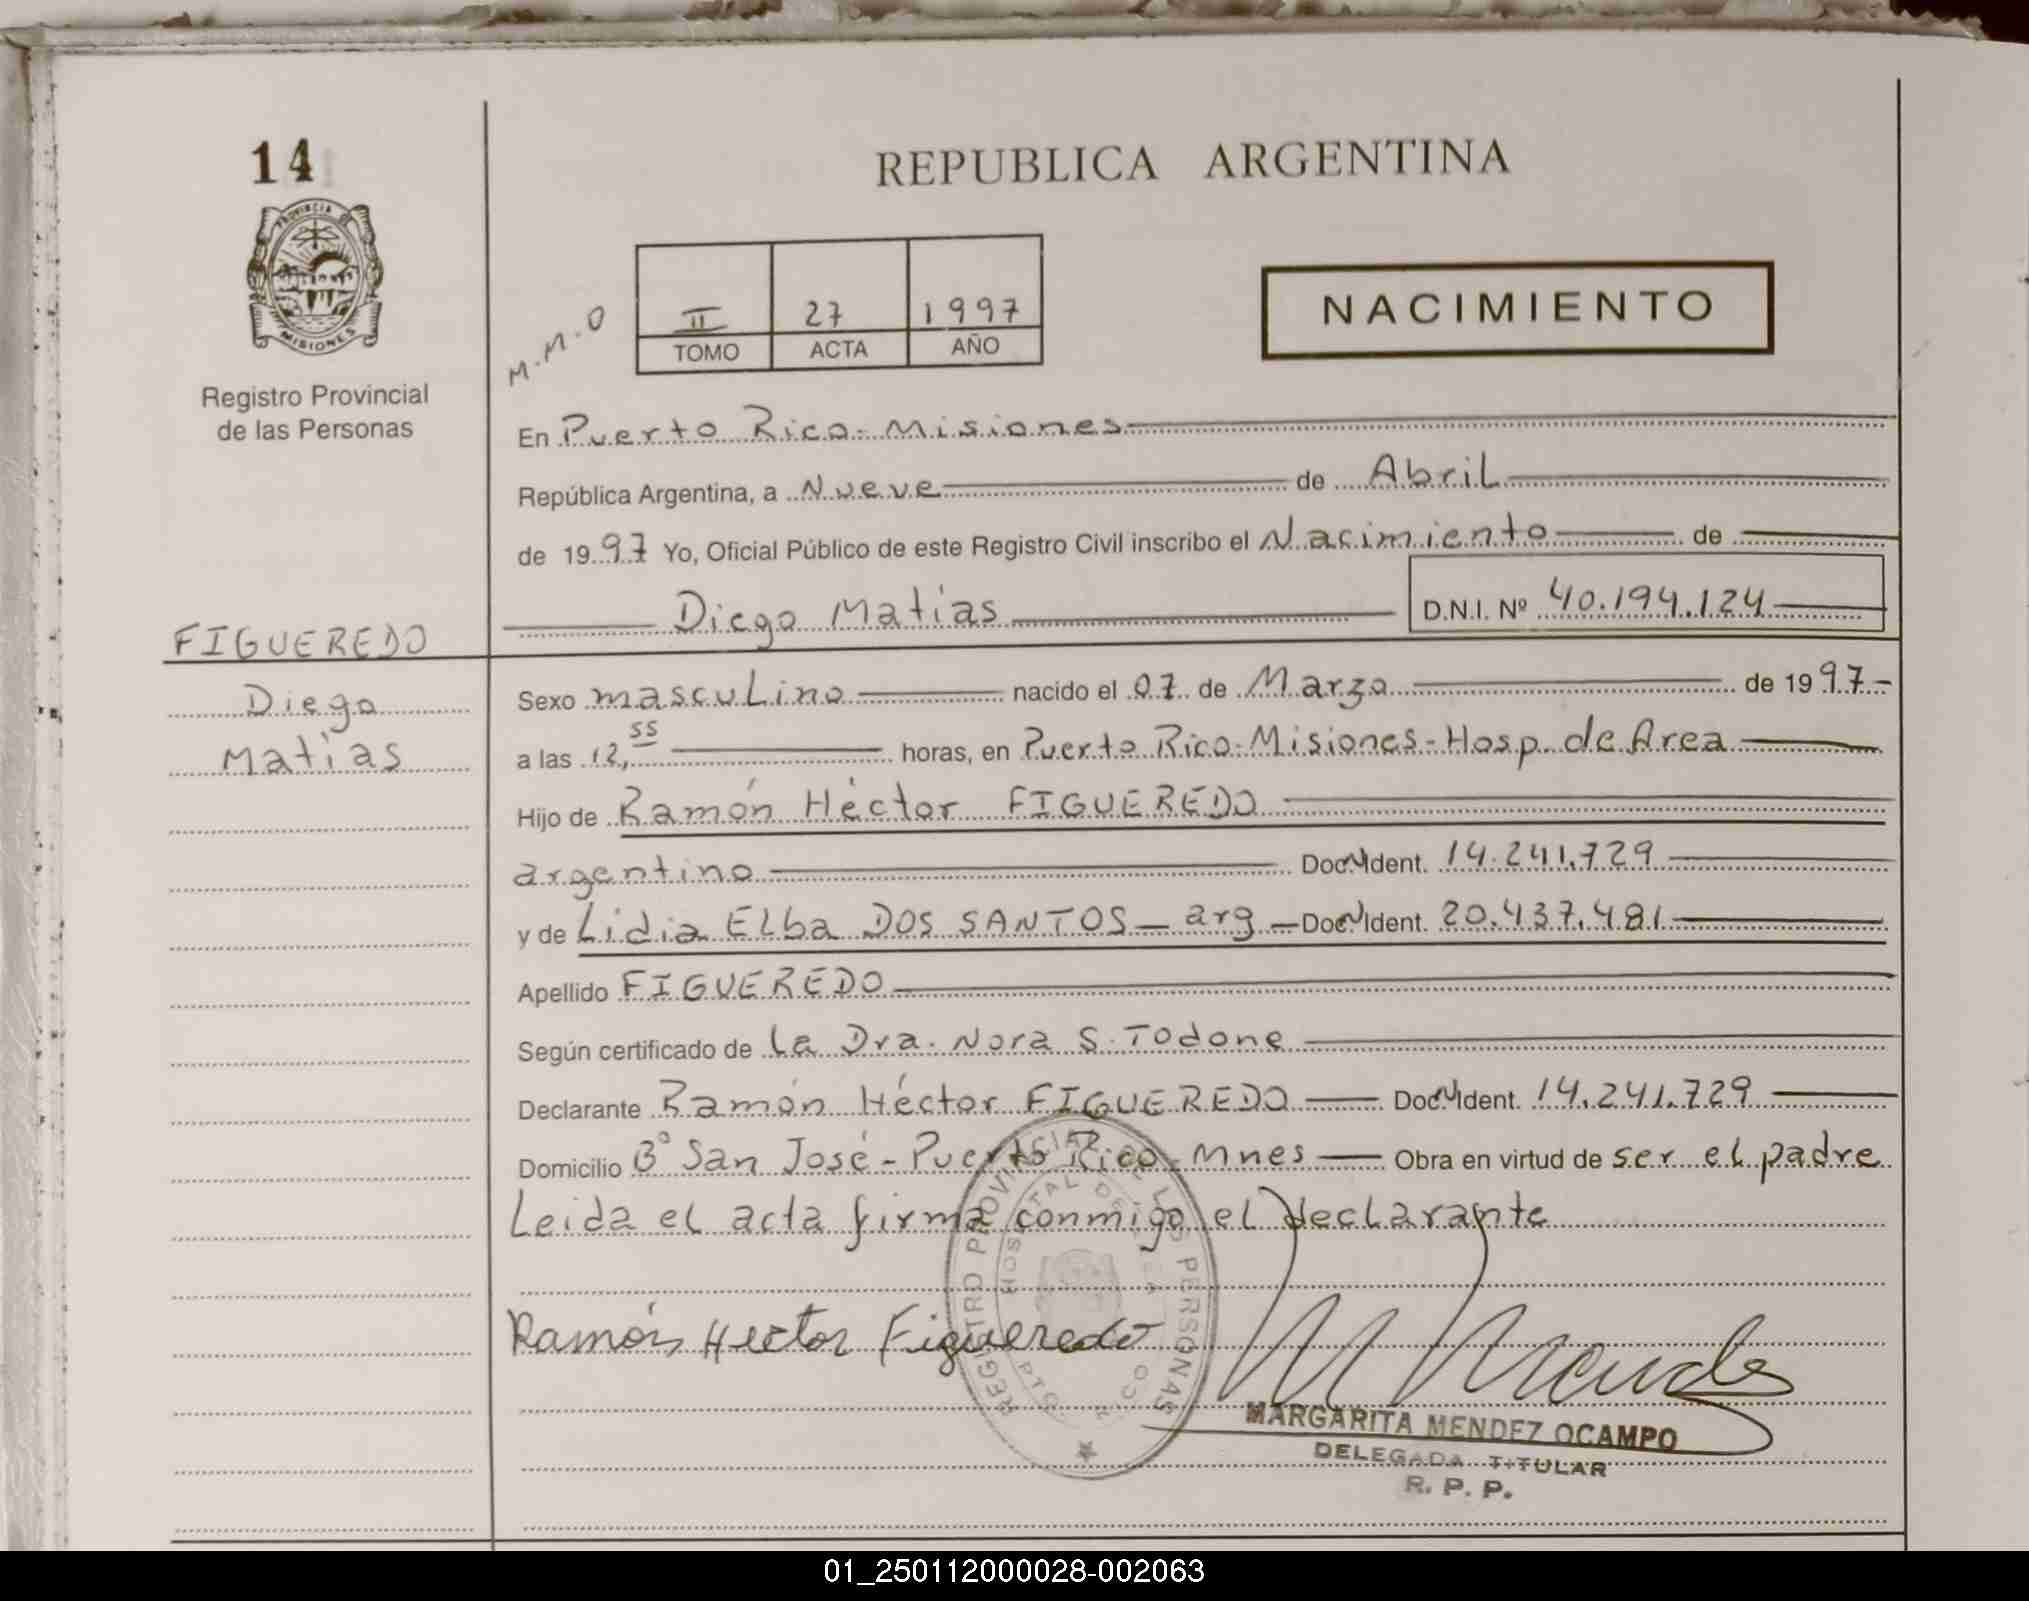 14
PROVINCIA
MISIONES
Registro Provincial
de las Personas
FIGUEREDO
Diego
Matías
REPUBLICA ARGENTINA
M.M.O
II 27 1997
TOMO ACTA AÑO
NACIMIENTO
En Puerto Rico-Misiones
República Argentina, a Nueve de Abril
de 1997 Yo, Oficial Público de este Registro Civil inscribo el Nacimiento de
Diego Matías D.N.I. Nº 40.194.124
Sexo masculino nacido el 07 de Marzo de 1997-
a las 12,55 horas, en Puerto Rico-Misiones-Hosp. de Area
Hijo de Ramón Héctor FIGUEREDO
argentino Doc. Ident. 14.241.729
y de Lidia Elba DOS SANTOS - arg - Doc. Ident. 20.437.481
Apellido FIGUEREDO
Según certificado de la Dra. Nora S. Todone
Declarante Ramón Héctor FIGUEREDO Doc. Ident. 14.241.729
Domicilio Bº San José - Puerto Rico-Mnes Obra en virtud de ser el padre
Leida el acta firma conmigo el declarante
Ramón Hector Figueredo
REGISTRO PROVINCIAL DE LAS PERSONAS
HOSPITAL DE AREA
PTO. RICO
MARGARITA MENDEZ OCAMPO
DELEGADA TITULAR
R. P. P.
01_250112000028-002063